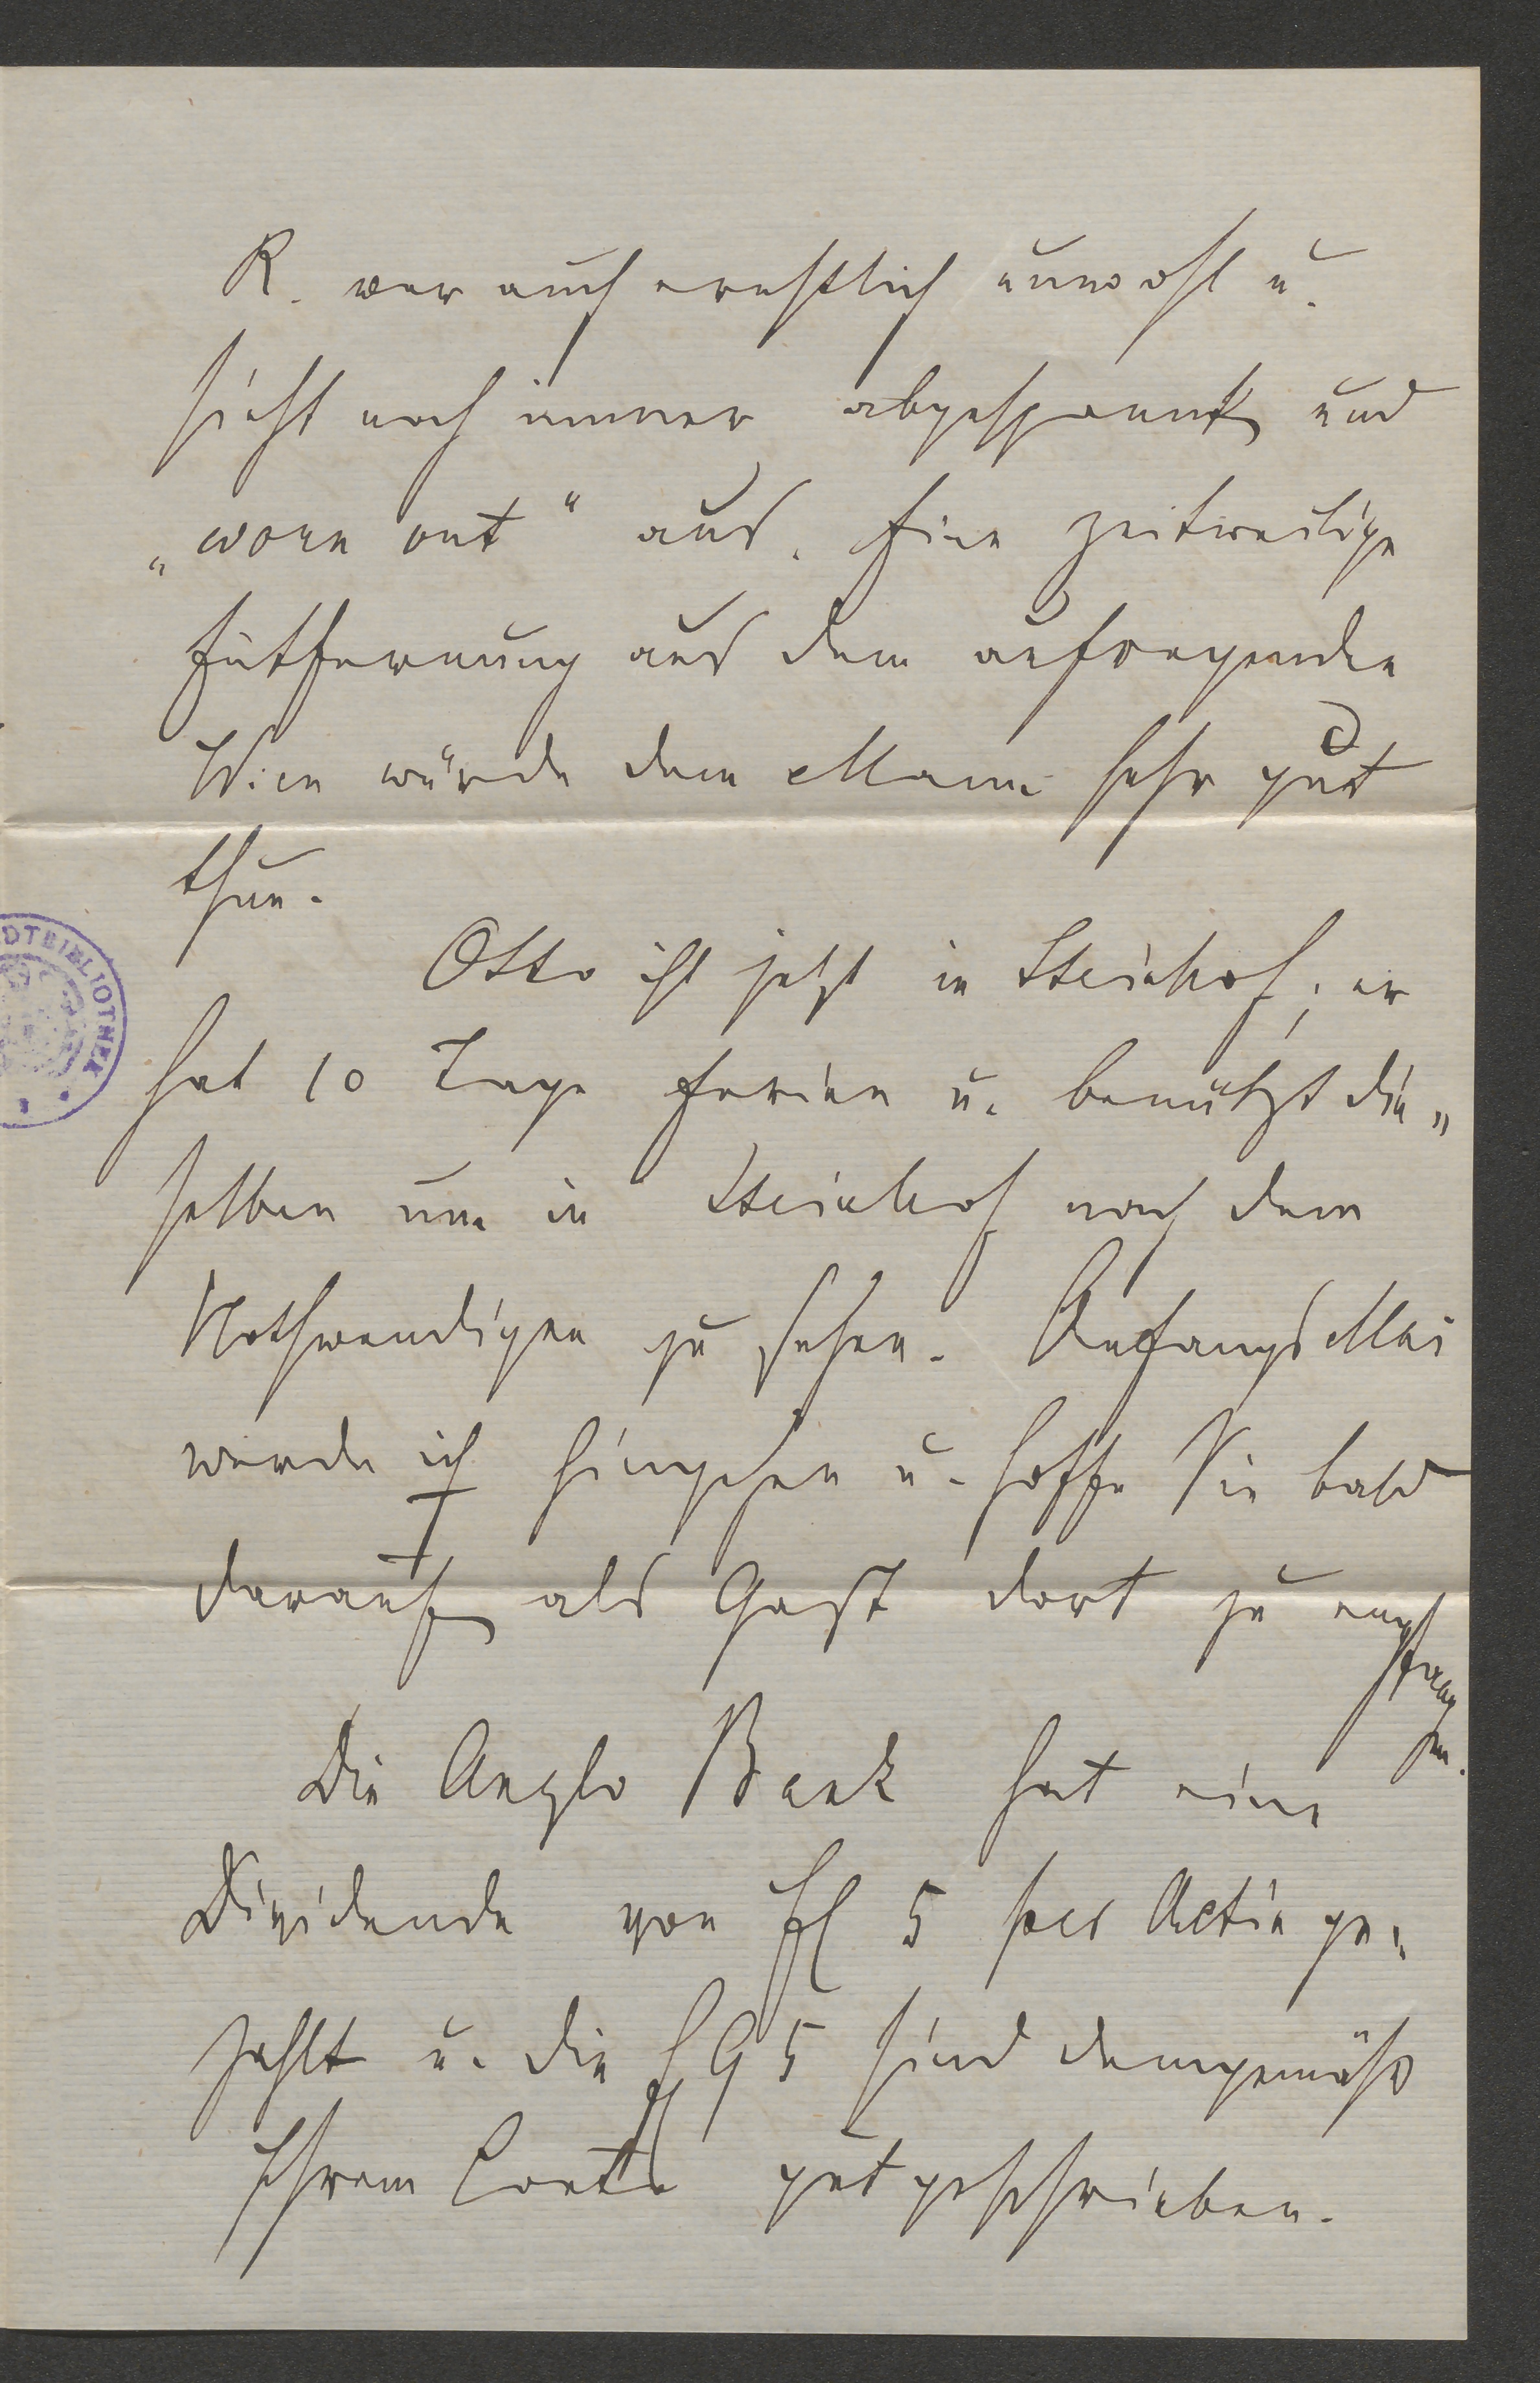 R. war auch ernstlich unwohl u.
sieht noch immer abgespannt und
„worn out“ aus. Eine zeitweilige
Entfernung aus dem aufregenden
Wien würde dem Manne sehr gut
thun.
Otto ist jetzt in Steinhof; er
hat 10 Tage Ferien u. benützt die„
selben um in Steinhof nach dem
Nothwendigen zu sehen. Anfangs Mai
werde ich hingehen u. hoffe Sie bald
darauf als Gast dort zu empfangen.
Die Anglo Bank hat eine
Dividende von fl 5 per Actie ge„
zahlt u. die fl 95 sind demgemäß
Ihrem Conto gutgeschrieben.
DTBIBLIOTHEK